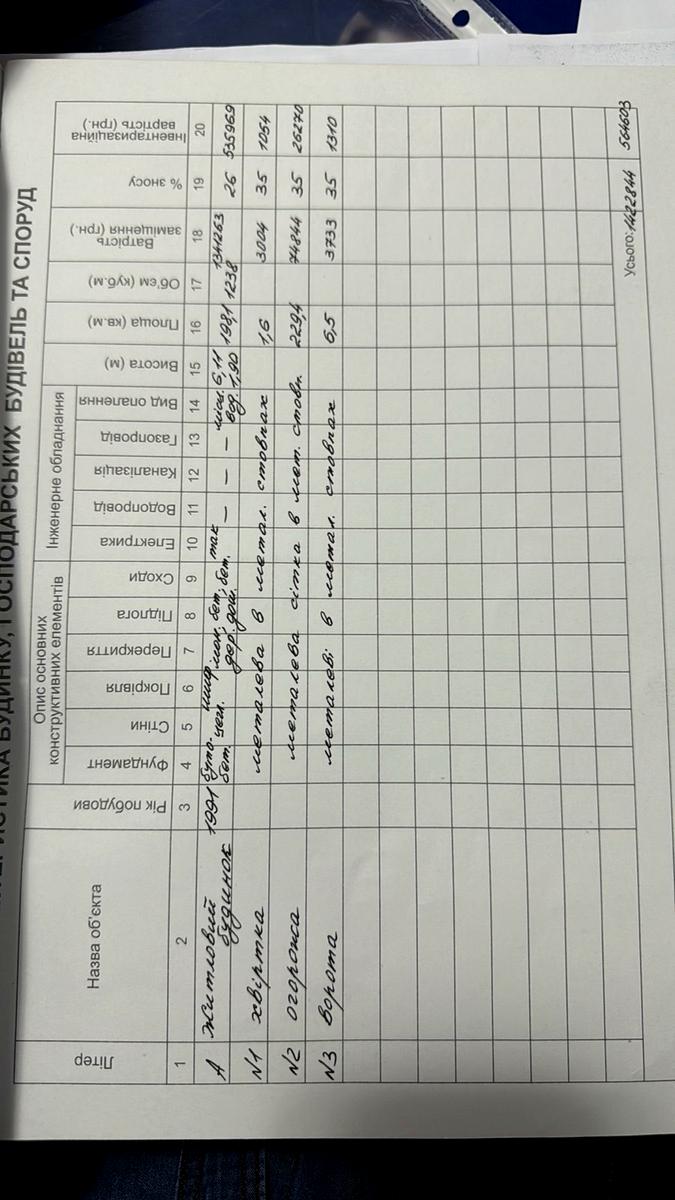 ХАРАКТЕРИСТИКА БУДИНКУ, ГОСПОДАРСЬКИХ БУДІВЕЛЬ ТА СПОРУД
Літер
Назва об'єкта
Рік побудови
Опис основних
конструктивних елементів
Інженерне обладнання
Фундамент
Стіни
Покрівля
Перекриття
Підлога
Сходи
Електрика
Водопровід
Каналізація
Газопровід
Вид опалення
Висота (м)
Площа (кв.м)
Об'єм (куб.м)
Ватрість
заміщення (грн.)
% зносу
Інвентаризаційна
вартість (грн.)
1 2 3 4 5 6 7 8 9 10 11 12 13 14 15 16 17 18 19 20
А Житловий 1991 буто. шиф мон, бет, бет. так — — — 6,11 198,1 1341263 26 535969
будинок бет. цегл. дер. дощ. бет. — — — вод. 1,90 1238
N1 хвіртка металева в метал. стовпах 1,6 3004 35 1054
N2 огорожа металева сітка в мет. стовп. 229,4 74844 35 26270
N3 ворота металеві в метал. стовпах 6,5 3733 35 1310
Усього: 1422844 564603